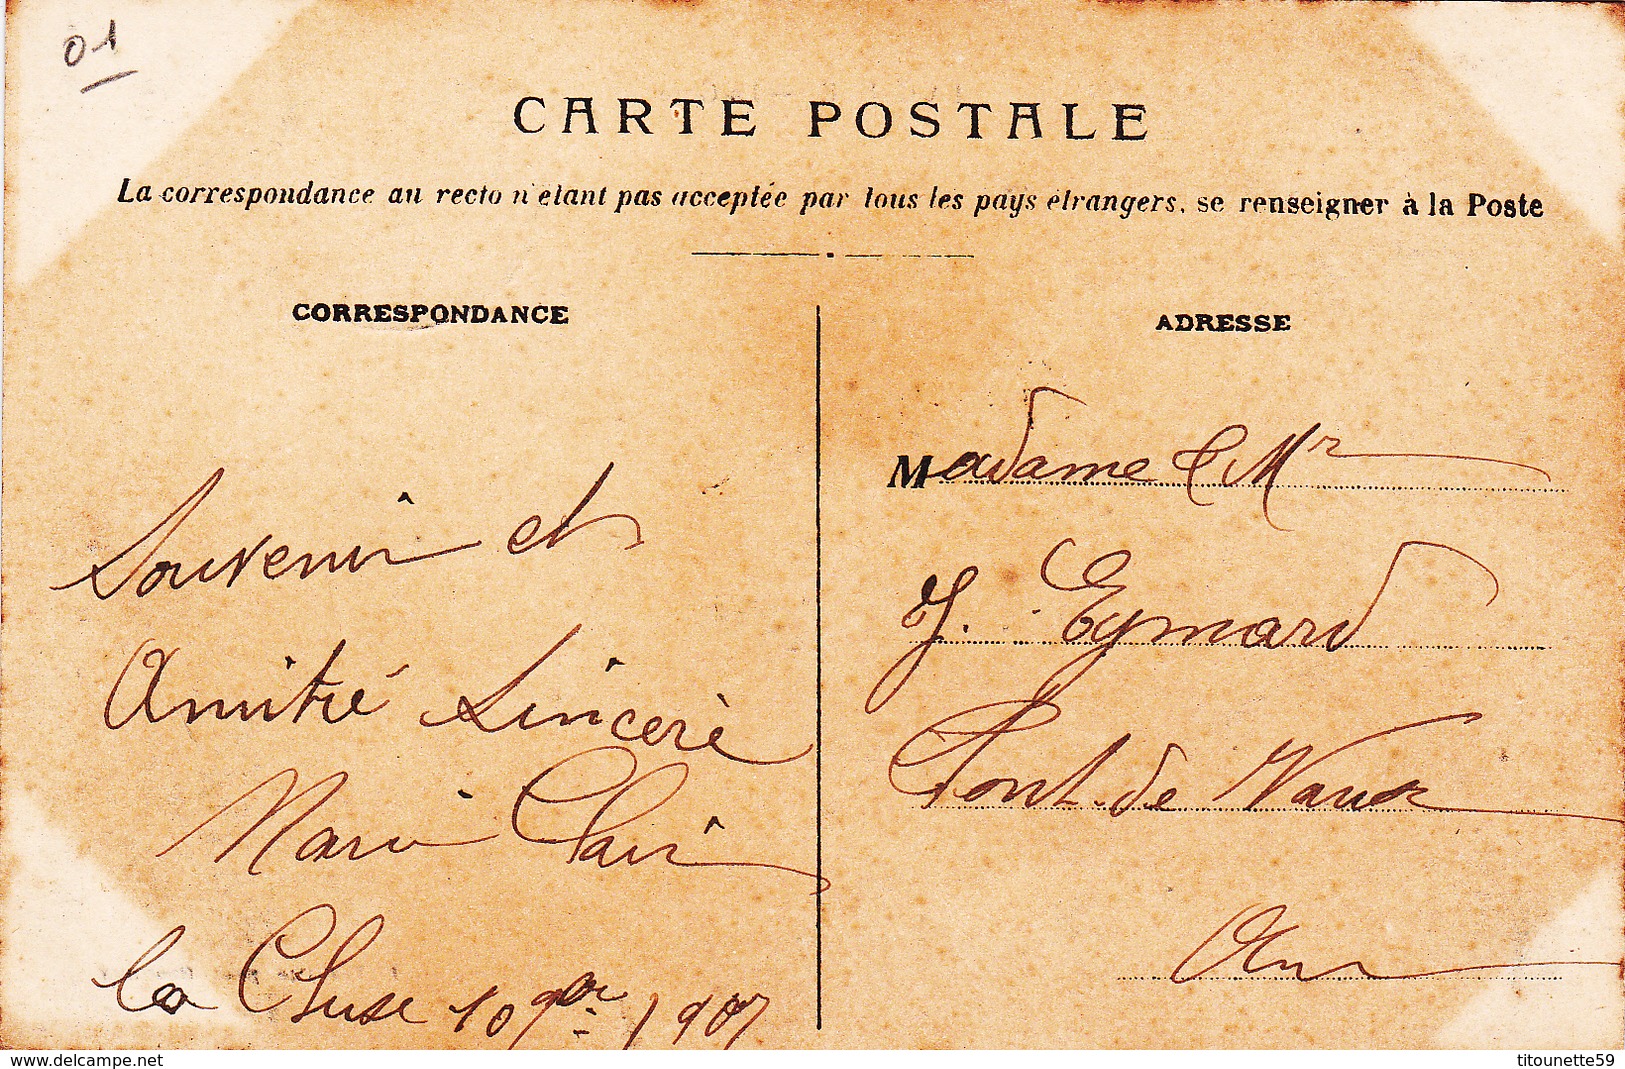 01
CARTE POSTALE
La correspondance au recto n'étant pas acceptée par tous les pays étrangers, se renseigner à la Poste
CORRESPONDANCE
Souvenir et
Amitié Sincère
Marie Clair
la Cluse 10 9bre 1907
ADRESSE
Madame & Mr
J. Eymard
Pont-de Vaux
Ain
www.delcampe.net
titounette59